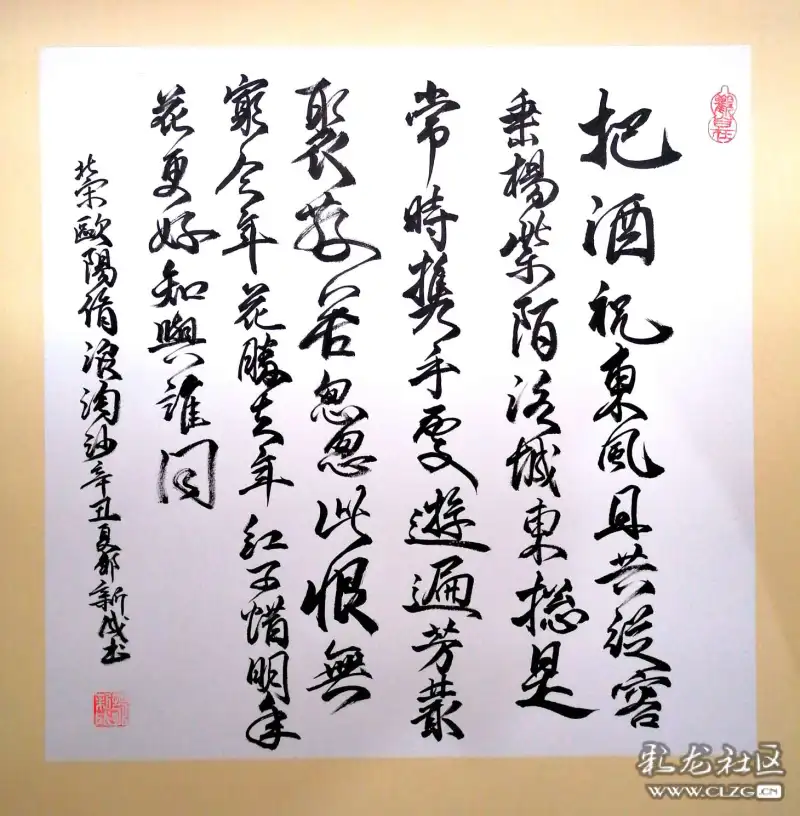 把酒祝東風且共從容
垂楊紫陌洛城東摠是
當時携手處遊遍芳叢
聚散苦怱怱此恨無
窮今年花勝去年紅可惜明年
花更好知與誰同
北宋歐陽脩浪淘沙辛丑夏新成书
觀自在
彩龙社区
WWW.CLZG.CN